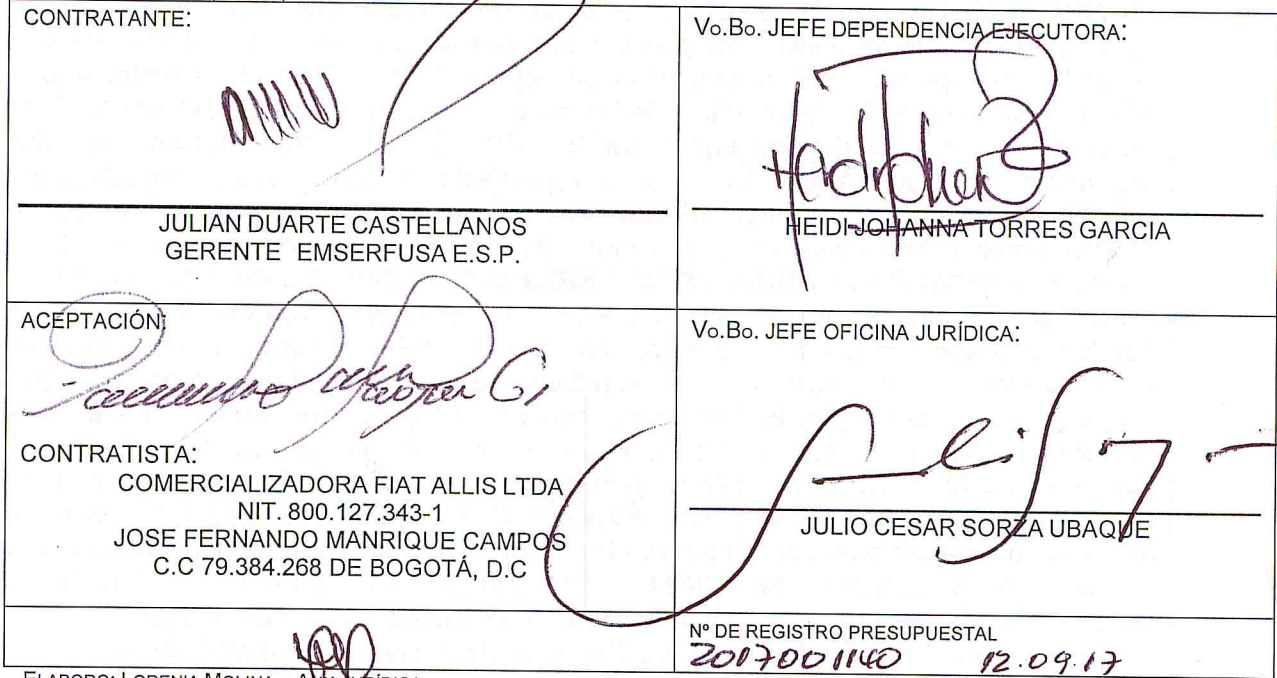 CONTRATANTE:
JULIAN DUARTE CASTELLANOS
GERENTE EMSERFUSA E.S.P.
Vo.Bo. JEFE DEPENDENCIA EJECUTORA:
HEIDI JOHANNA TORRES GARCIA
ACEPTACIÓN:
CONTRATISTA:
COMERCIALIZADORA FIAT ALLIS LTDA
NIT. 800.127.343-1
JOSE FERNANDO MANRIQUE CAMPOS
C.C 79.384.268 DE BOGOTÁ, D.C
Vo.Bo. JEFE OFICINA JURÍDICA:
JULIO CESAR SORZA UBAQUE
Nº DE REGISTRO PRESUPUESTAL
2017001140 12.09.17
ELABORO: LORENIA MOLINA